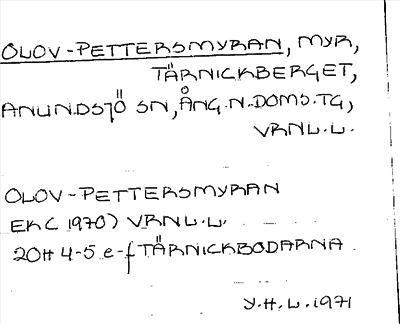 OLOV-PETTERSMYRAN, MYR,
TÄRNICKBERGET,
ANUNDSJÖ SN, ÅNG.N.DOMS.TG,
VRNL.L.
OLOV-PETTERSMYRAN
EK(1970) VRNL.L.
20H 4-5 e-f TÄRNICKBODARNA
Y.H.L. 1971